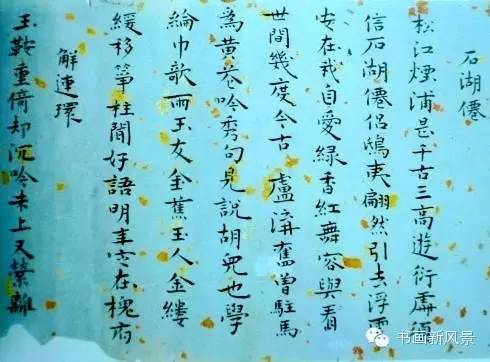 石湖僊
松江煙浦是千古三高遊衍處須
信石湖僊侣鴟夷翩然引去浮雲
安在我自愛綠香紅舞容與看
世間幾度今古 盧溝舊曾駐馬
為黃花吟秀句見說胡兒也學
綸巾敧雨玉友金蕉玉人金縷
緩移箏柱聞好語明年定在槐府
解連環
玉鞍重倚却沉吟未上又縈離
书画新风景